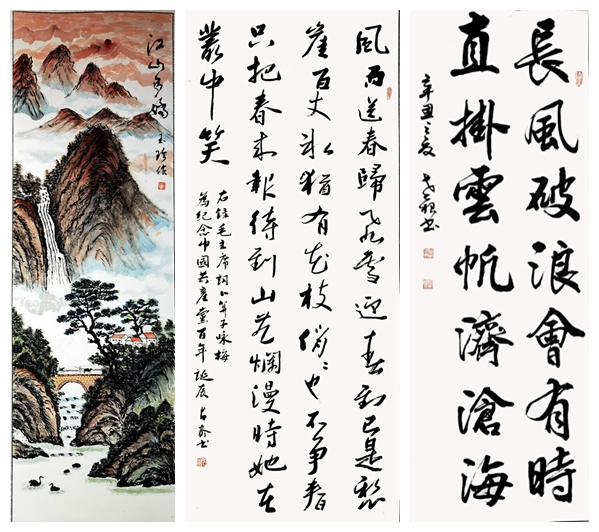 江山多嬌
玉珍作
風雨送春歸飞雪迎春到已是愁
崖百丈冰猶有花枝俏〻也不争春
只把春來報待到山花爛漫時她在
叢中笑
右錄毛主席詞卜算子咏梅
為紀念中國共產黨百年誕辰
長風破浪會有時
直掛雲帆濟滄海
辛丑之夏